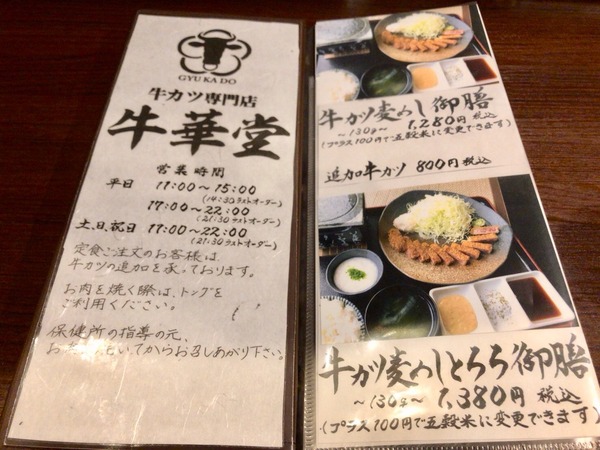 GYU KA DO
牛カツ専門店
牛華堂
営業時間
平日 11:00～15:00
(14:30ラストオーダー)
17:00～22:00
(21:30ラストオーダー)
土、日、祝日 11:00～22:00
(21:30ラストオーダー)
定食ご注文のお客様は、
牛カツの追加を承っております。
お肉を焼く際は、トングを
ご利用ください。
保健所の指導の元、
いてからお召しあがり下さい。
牛カツ麦めし御膳
～130g～ 1,280円 税込
(プラス100円で五穀米に変更できます)
追加牛カツ 800円 税込
牛カツ麦めしとろろ御膳
～130g～ 1,380円 税込
(プラス100円で五穀米に変更できます)